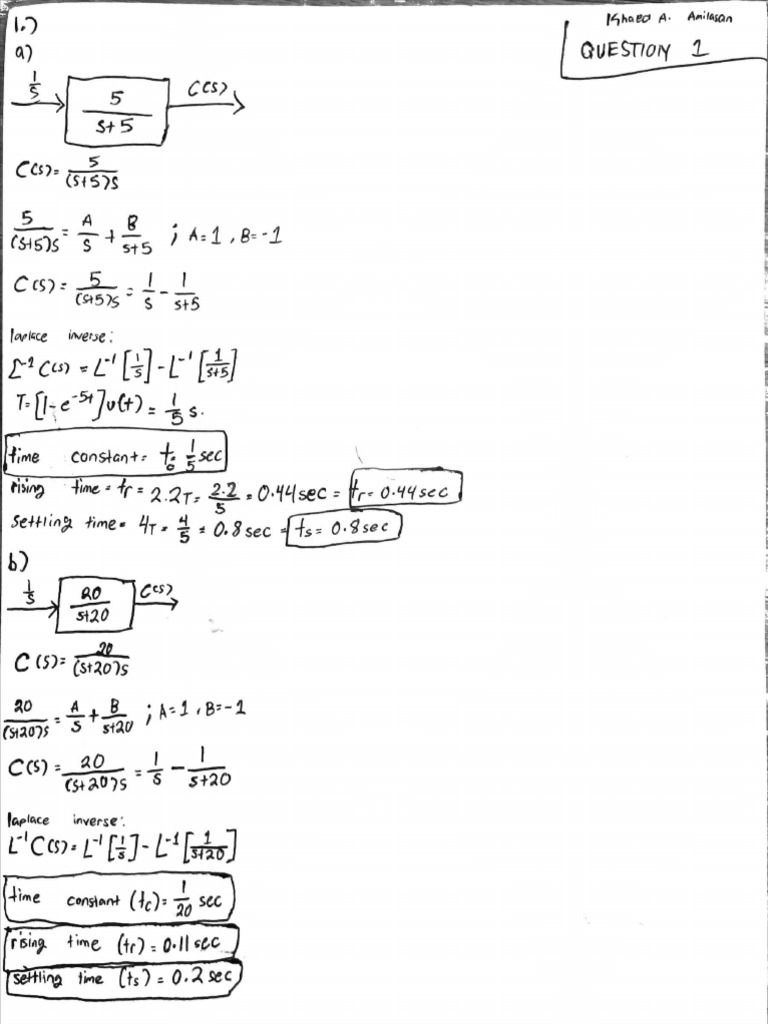 Khaed A. Amilasan
QUESTION 1
1.)
a)
1/s → 5/(s+5) C(s) →
C(s) = 5/(s+5)s
5/(s+5)s = A/s + B/s+5 ; A=1, B=-1
C(s) = 5/(s+5)s = 1/s - 1/s+5
laplace inverse:
L⁻¹ C(s) = L⁻¹[1/s] - L⁻¹[1/s+5]
T= [1-e^-5t]u(t) = 1/5 s.
time constant= tc= 1/5 sec
rising time = tr = 2.2T= 2.2/5 = 0.44 sec = tr= 0.44 sec
settling time = 4T = 4/5 = 0.8 sec = ts= 0.8 sec
b)
1/s → 20/s+20 C(s) →
C(s) = 20/(s+20)s
20/(s+20)s = A/s + B/s+20 ; A=1, B=-1
C(s) = 20/(s+20)s = 1/s - 1/s+20
laplace inverse:
L⁻¹ C(s) = L⁻¹[1/s] - L⁻¹[1/s+20]
time constant (tc) = 1/20 sec
rising time (tr) = 0.11 sec
settling time (ts) = 0.2 sec